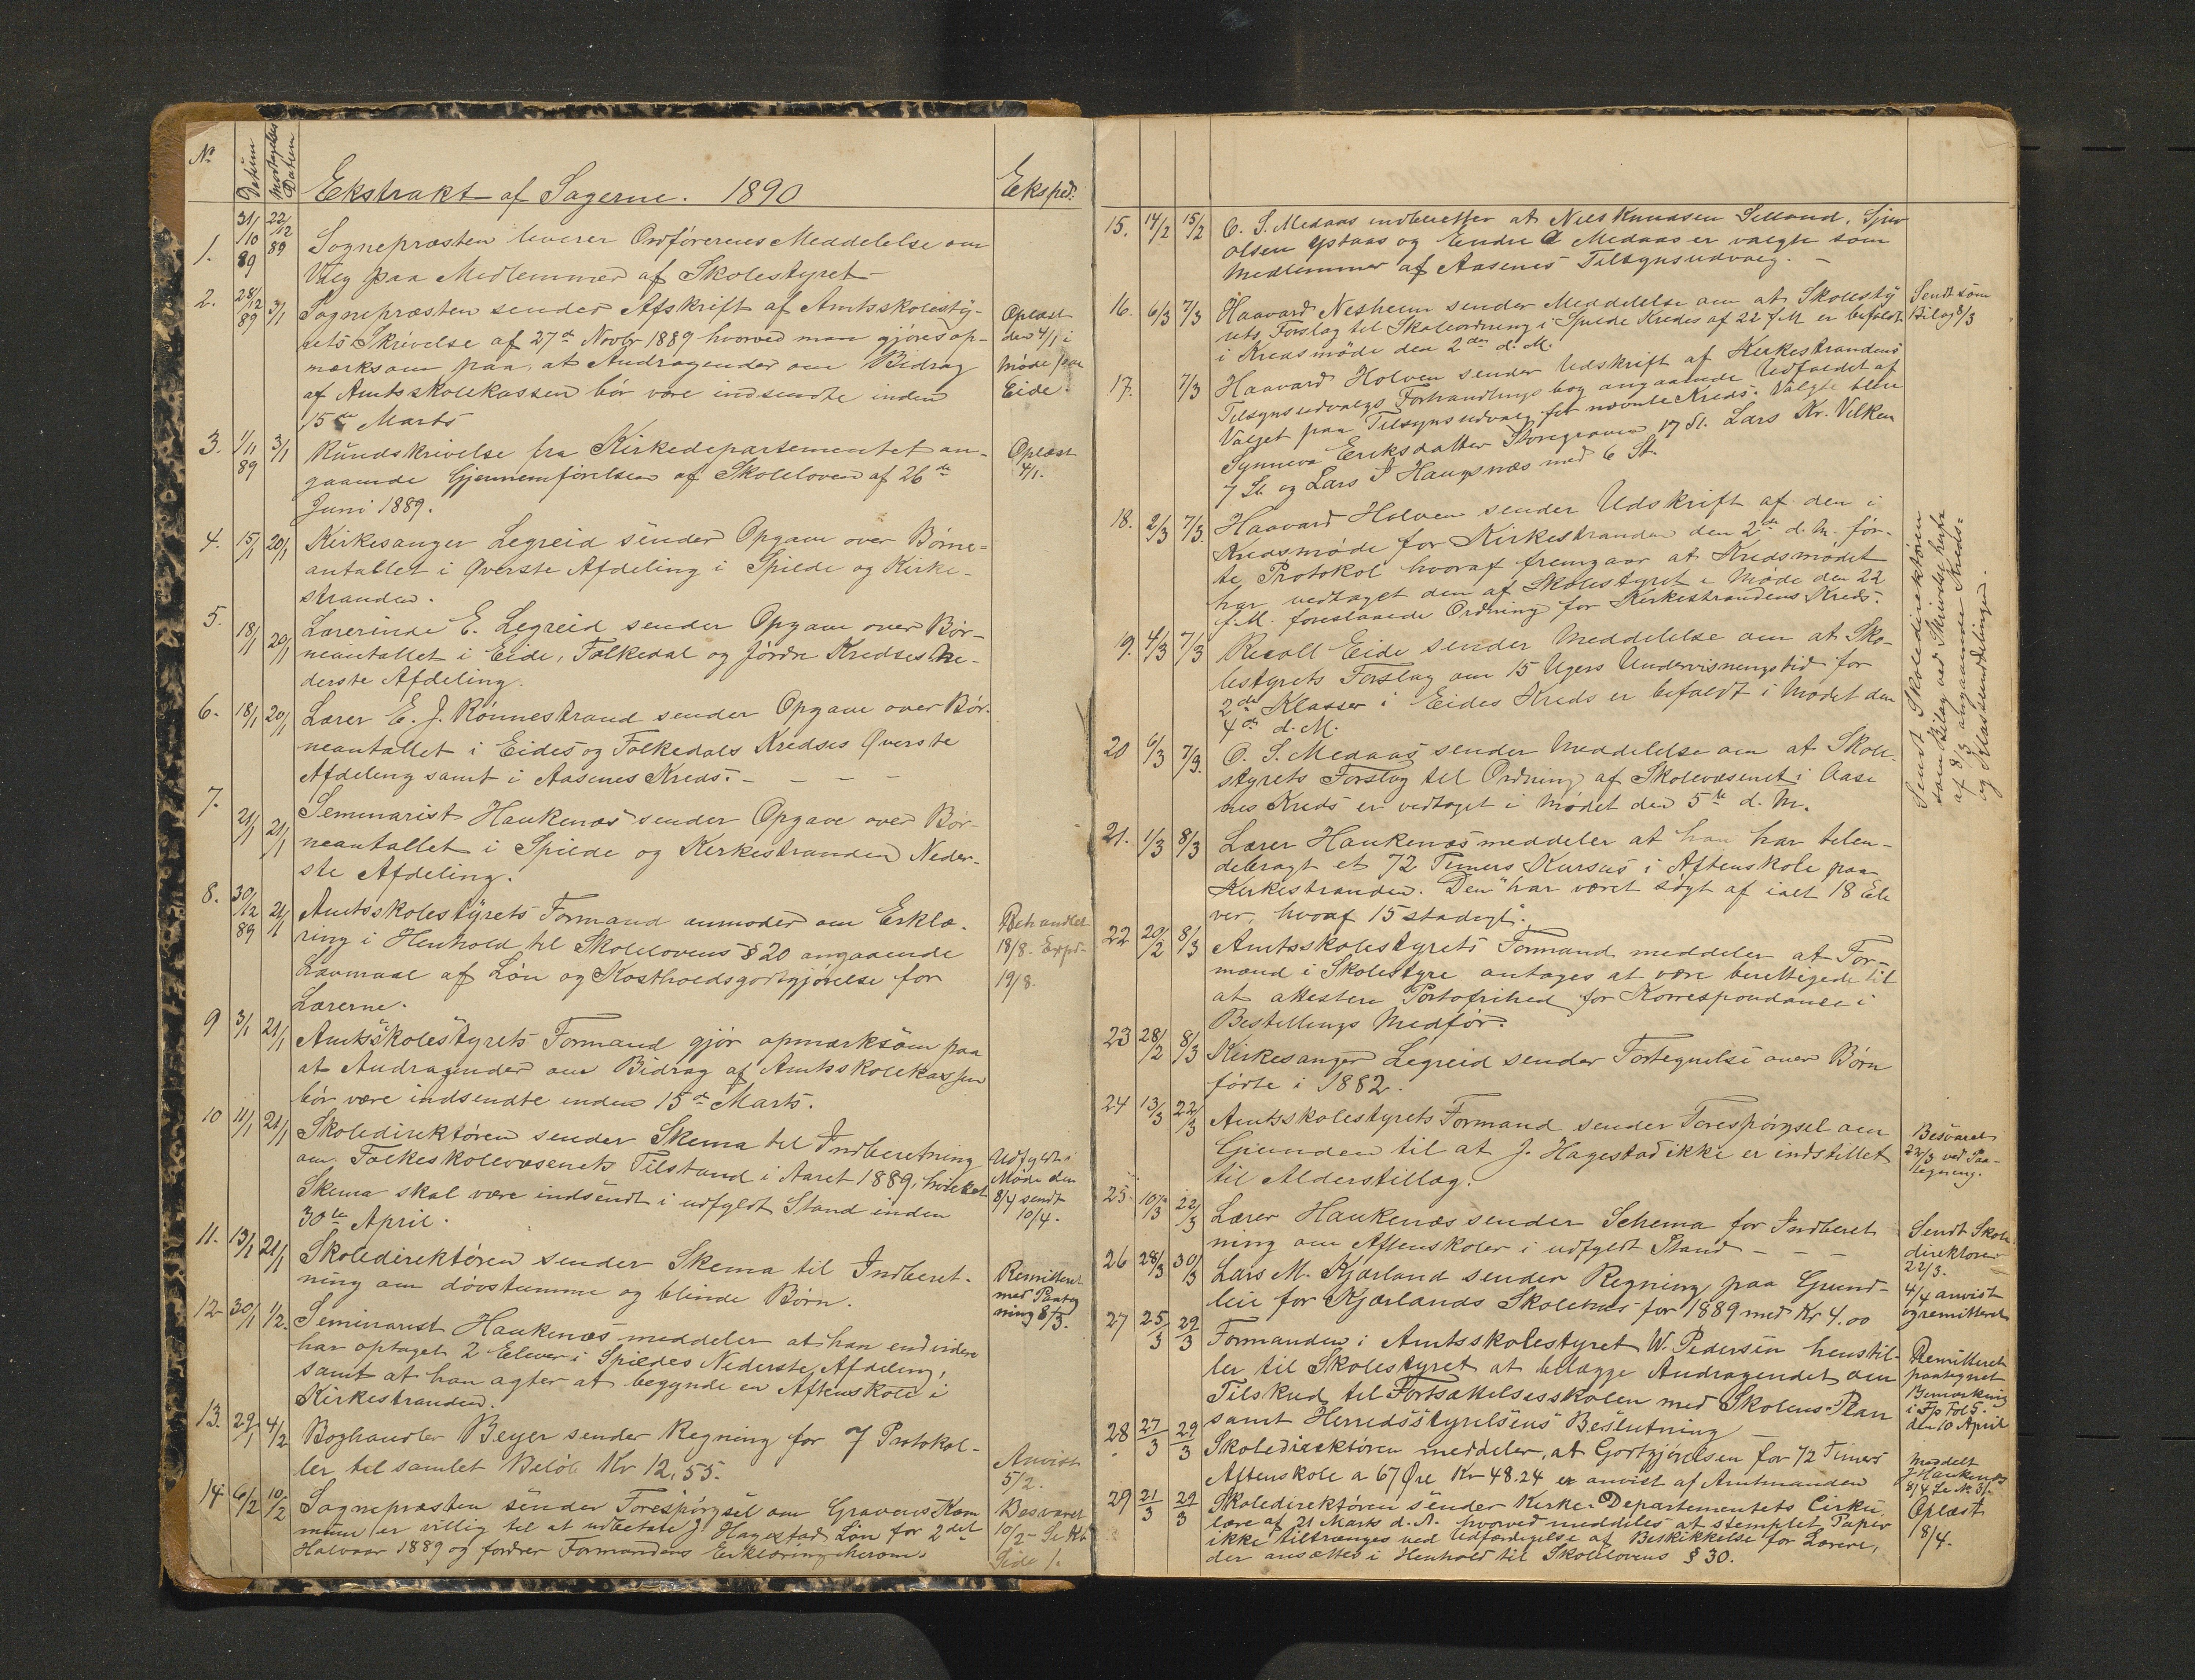 No
Datum
Modtagelses Datum
Ekstrakt af Sagerne. 1890
Eksped.
1. 31/10 89 22/12 89 Sognepræsten leverer Ordförerens Meddelelse om
Valg paa Medlemmer af Skolestyret
2. 28/12 89 3/1 Sognepræsten sender Afskrift af Amtsskolesty-
rets Skrivelse af 27de Novbr 1889 hvorved man gjöres op-
mærksom paa, at Andragender om Bidrag
af Amtsskolekassen bör være indsendte inden
15de Marts
Oplæst
den 4/1 i
Möde paa
Eide.
3. 1/11 89 3/1 Rundskrivelse fra Kirkedepartementet an-
gaaende Gjennemförelsen af Skoleloven af 26de
Juni 1889.
Oplæst
4/1.
4. 15/1 20/1 Kirkesanger Legreid sender Opgave over Börne-
antallet i øverste Afdeling i Spilde og Kirke-
stranden.
5. 18/1 20/1 Lærerinde E. Legreid sender Opgave over Bör-
neantallet i Eide, Folkedal og Jördre Kredses Ne-
derste Afdeling.
6. 18/1 20/1 Lærer E. J. Rönnestrand sender Opgave over Bör-
neantallet i Eides og Folkedals Kredses Øverste
Afdeling samt i Aasenes Kreds. - - - -
7. 21/1 21/1 Seminarist Haukenæs sender Opgave over Bör-
neantallet i Spilde og Kirkestranden Neder-
ste Afdeling.
8. 30/12 89 21/1 Amtsskolestyrets Formand anmoder om Erklæ-
ring i Henhold til Skolelovens § 20 angaaende
Lavmaal af Lön og Kostholdsgodtgjörelse for
Lærerne.
Behandlet
18/8. Expd.
19/8.
9 3/1 21/1 Amtsskolestyrets Formand gjör opmærksom paa
at Andragender om Bidrag af Amtsskolekassen
bör være indsendte inden 15de Marts.
10 11/1 21/1 Skoledirektören sender Skema til Indberetning
om Folkeskolevæsenets Tilstand i Aaret 1889, hvilket
Skema skal være indsendt i udfyldt Stand inden
30te April.
Udfyldt i
Möde den
8/4 sendt
10/4.
11. 13/1 21/1 Skoledirektören sender Skema til Indberet-
ning om dövstumme og blinde Börn.
Remitteret
med Paateg
ning 8/3.
12 30/1 1/2. Seminarist Haukenæs meddeler at han endvidere
har optaget 2 Elever i Spildes Nederste Afdeling,
samt at han agter at begynde en Aftenskole i
Kirkestranden.
13. 29/1 4/2 Boghandler Beyer sender Regning for 7 Protokol-
ler til samlet Belöb Kr 12,55.
Anvist
5/2.
14. 6/2 10/2 Sognepræsten sender Forespörgsel om Gravens Kom
mune er villig til at udbetale J. Hagestad Lön for 2det
Halvaar 1889 og fordrer Formandens Erklæring herom.
Besvaret
10/2 - Se Kb
Side 1.
15. 14/2 15/2 O. S. Medaas indberetter at Nils Knudsen Selland, Sjur
Olsen Ystaas og Endre O Medaas er valgte som
Medlemmer af Aasenes Tilsynsudvalg. -
16. 6/3 7/3 Haavard Nesheim sender Meddelelse om at Skolesty
rets Forslag til Skoleordning i Spilde Kreds af 22 f.M er befaldt
i Kredsmöde den 2den d. M.
Sendt som
Bilag 8/3
17. 7/3 Haavard Holven sender Udskrift af Kirkestrandens
Tilsynsudvalgs Forhandlingsbog angaaende Udfaldet af
Valget paa Tilsynsudvalg for nævnte Kreds. Valgte blev
Synneva Eriksdatter Storegraven 17 St. Lars Kr. Vilken
7 St. og Lars J Haugsnæs med 6 St.
18. 2/3 7/3. Haavard Holven sender Udskrift af den i
Kredsmöde for Kirkestranden den 2den d. M. för-
te Protokol hvoraf fremgaar at Kredsmödet
har vedtaget den af Skolestyret i Möde den 22
f.M. foreslaaede Ordning for Kirkestrandens Kreds.
19. 4/3 7/3 Rieoll Eide sender Meddelelse om at Sko-
lestyrets Forslag om 15 Ugers Undervisningstid for
2den Klasse i Eides Kreds er befaldt i Mödet den
4de d. M.
20 6/3 7/3. O. S. Medaas sender Meddelelse om at Skole-
styrets Forslag til Ordning af Skolevæsenet i Aase
nes Kreds er vedtaget i Mödet den 5te d. M.
Sendt Skoledirektören
som Bilag ved Skrivelse herfra
af 8/3 angaaende Kreds-
og Klasseinddelingen.
21. 1/3 8/3 Lærer Haukenæs meddeler at han har tilen-
debragt et 72 Timers Kursus i Aftenskole paa
Kirkestranden. Den har været sögt af ialt 18 Ele
ver, hvoraf 15 stadigt.
22 20/2 8/3 Amtsskolestyrets Formand meddeler at For-
mænd i Skolestyre antages at være berettigede til
at attestere Portofrihed for Korrespondance i
Bestillings Medför.
23 28/2 8/3 Kirkesanger Legreid sender Fortegnelse over Börn
födte i 1882.
24 13/3 22/3 Amtsskolestyrets Formand sender Forespörgsel om
Grunden til at J. Hagestad ikke er indstillet
til Alderstillæg.
Besvaret
22/3 ved Paa-
tegning.
25. 10/3 22/3 Lærer Haukenæs sender Schema for Indberet
ning om Aftenskoler i udfyldt Stand - - -
Sendt Skole
direktören
22/3.
26 28/3 30/3 Lars M. Kjærland sender Regning paa Grund-
leie for Kjærlands Skolehus for 1889 med Kr 4.00
4/4 anvist
og remitteret
27 25/3 29/3 Formanden i Amtsskolestyret W. Pedersen henstil-
ler til Skolestyret at belægge Andragendet om
Tilskud til Fortsættelsesskolen med Skolens Plan
samt Herredsstyrelsens Beslutning
Remitteret
paategnet
Bemærkning
i Fp Fol 5.
den 10 April
28 27/3 29/3 Skoledirektören meddeler, at Godtgjörelsen for 72 Timers
Aftenskole a 67 Øre Kr 48.24 er anvist af Amtmanden
Meddelt
J Haukenæs
8/4 Se No 31.
29 21/3 29/3 Skoledirektören sender Kirke-Departementets Cirku
lære af 21 Marts d. A. hvorved meddeles at stemplet Papir
ikke tiltrænges ved Udfærdigelse af Beskikkelse for Lærere,
der ansættes i Henhold til Skolelovens § 30.
Oplæst
18/4.